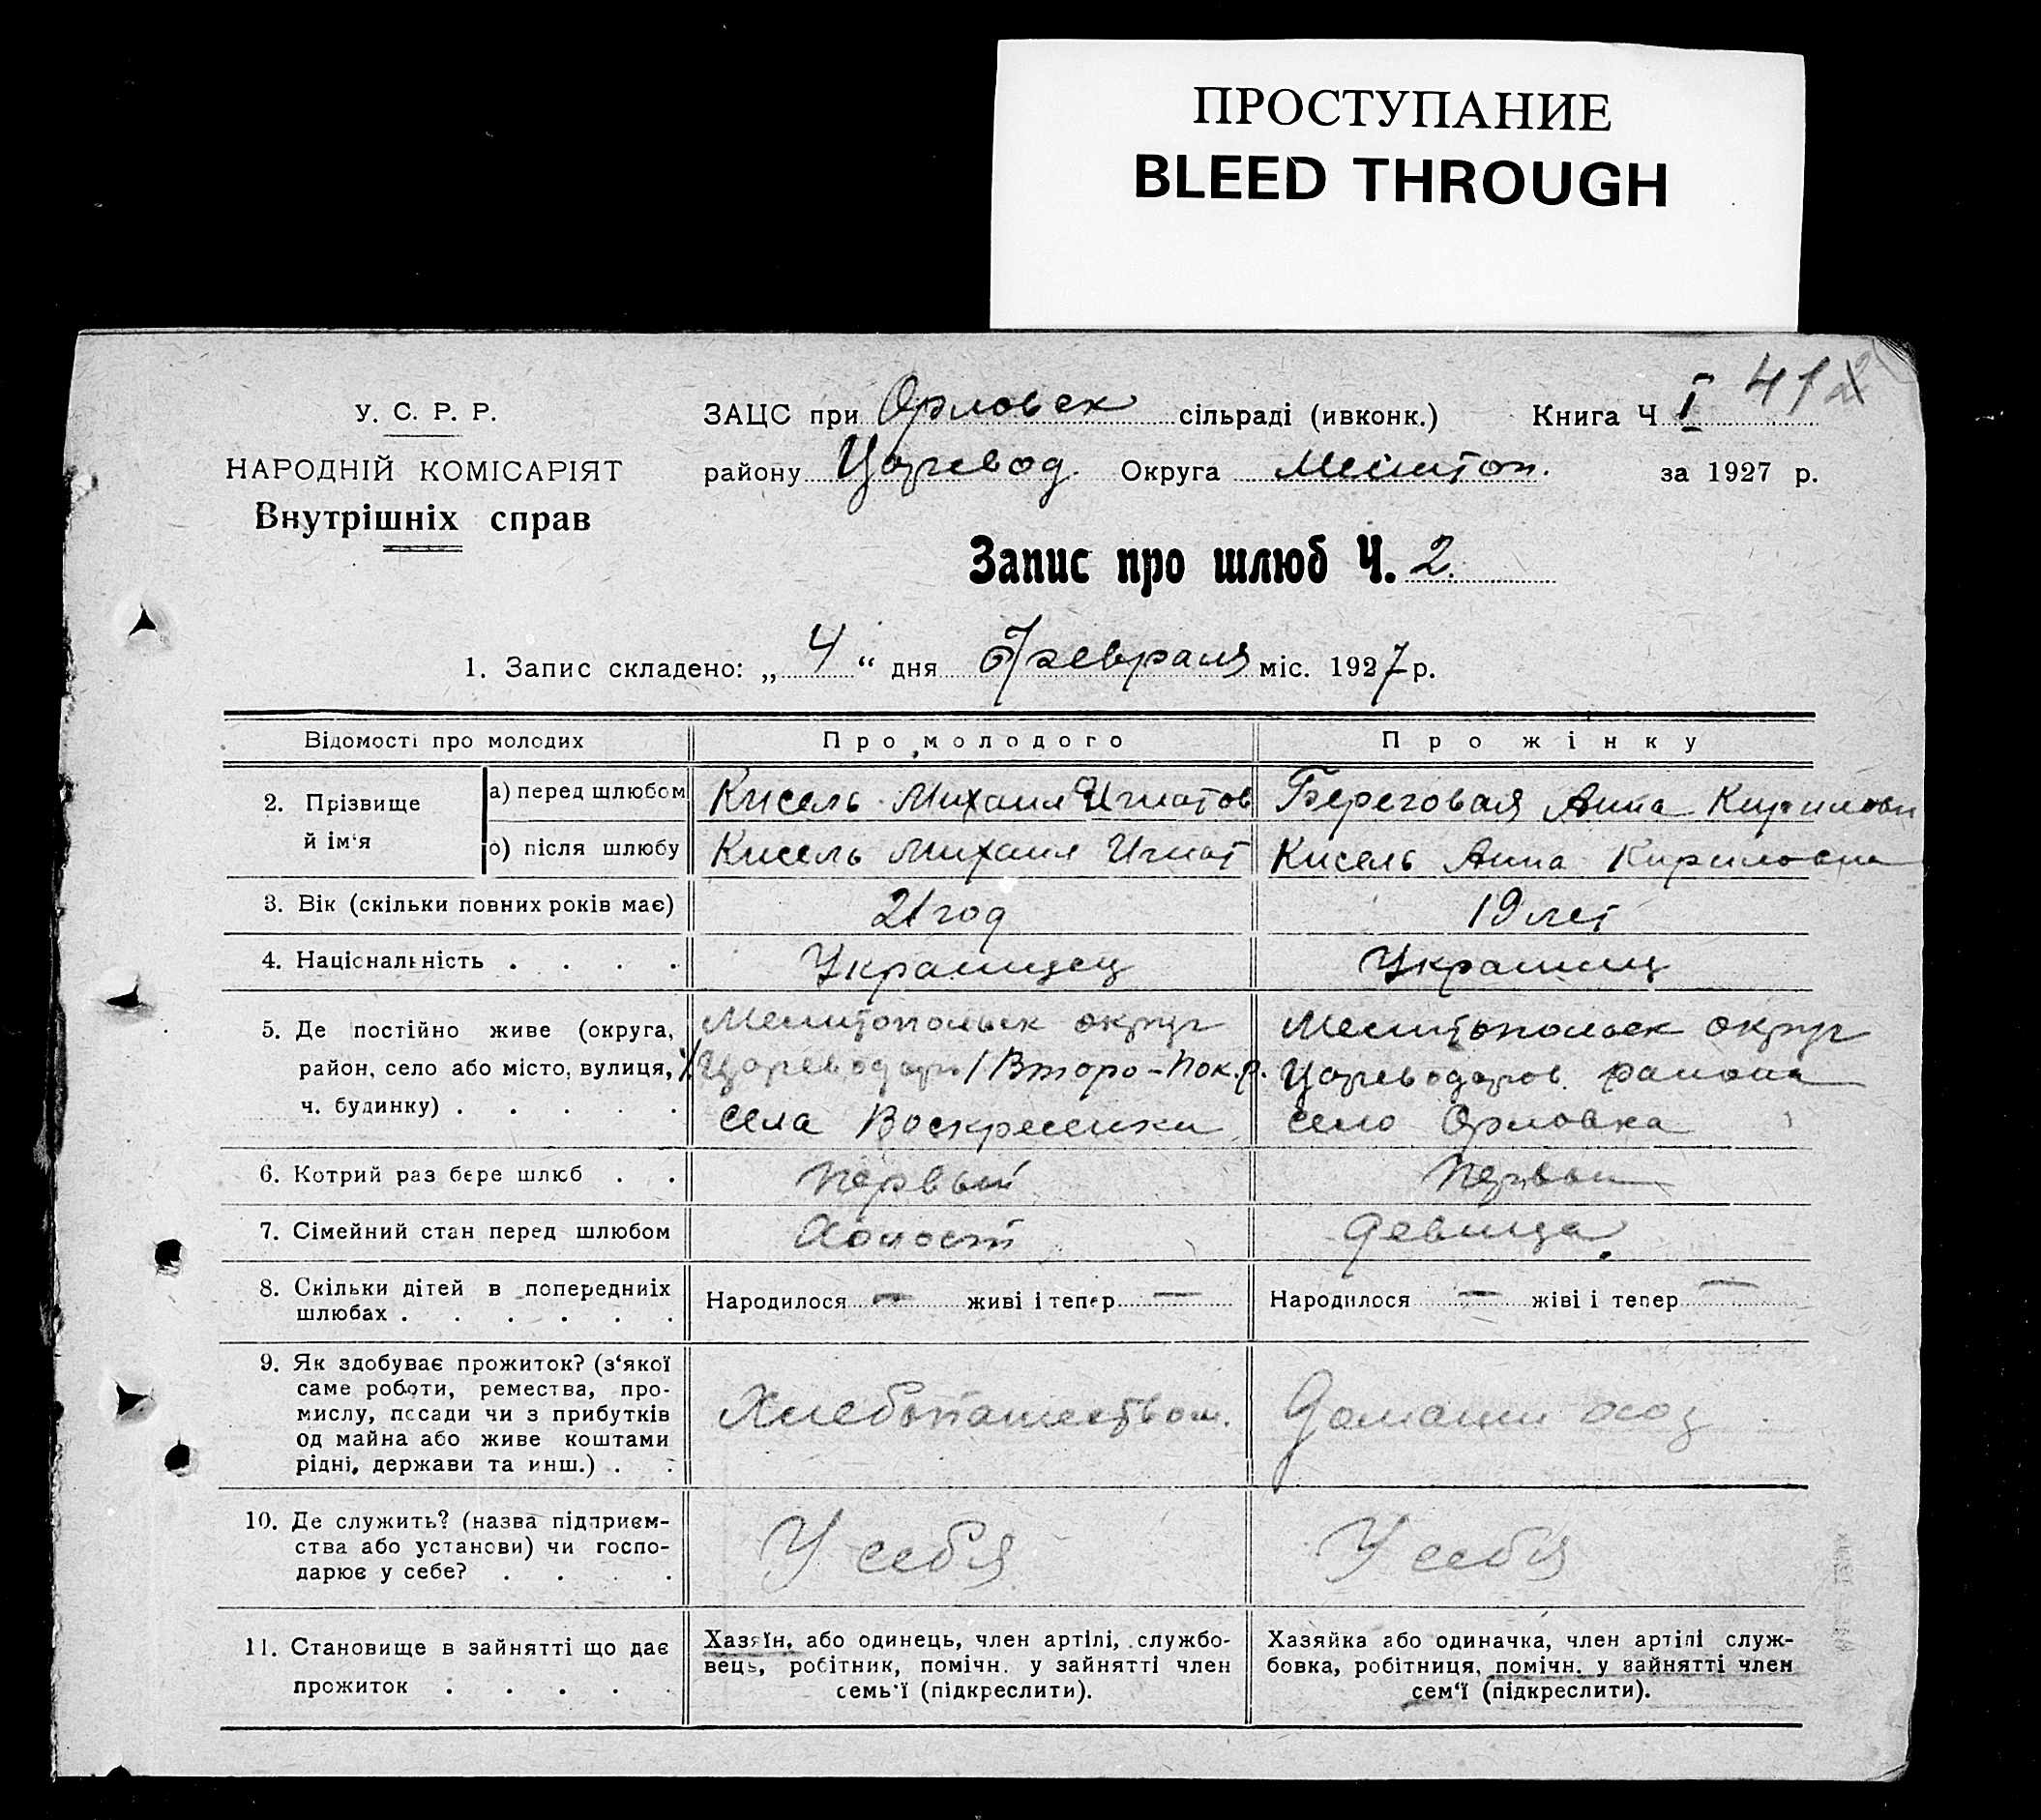 ПРОСТУПАНИЕ
BLEED THROUGH
41
У. С. Р. Р.
НАРОДНІЙ КОМІСАРІЯТ
Внутрішніх справ
ЗАЦС при Орловск сільраді (ивконк.) Книга Ч I
району Царевод. Округа Мелитоп. за 1927 р.
Запис про шлюб Ч. 2.
1. Запис складено: „ 4 “ дня Февраля міс. 1927 р.
Відомості про молодих Про молодого Про жінку
2. Прізвище й ім'я
а) перед шлюбом Кисель Михаил Игнатов Береговая Анна Кирилови
о) після шлюбу Кисель Михаил Игнат Кисель Анна Кириловна
3. Вік (скільки повних років має) 21 год 19 лет
4. Національність . . . . Украинец Украинц
5. Де постійно живе (округа, Мелитопольск округ Мелитопольск округ
район, село або місто, вулиця, Цареводар / Второ-Пок.р. Цареводаров. района
ч. будинку) . . . . . села Воскресенки село Орловка
6. Котрий раз бере шлюб . . Первый Первый
7. Сімейний стан перед шлюбом Холост девица.
8. Скільки дітей в попередниіх Народилося — живі і тепер — Народилося — жіві і тепер —
шлюбах . . . . . .
9. Як здобуває прожиток? (з‘якої
саме роботи, ремества, про-
мислу, посади чи з прибутків Хлебопашеством. Домашн хоз
од майна або живе коштами
рідні, держави та инш.) . .
10. Де служить? (назва підприєм-
ства або установи) чи госпо- У себя У себя
дарює у себе? . . . .
11. Становище в зайнятті що дає
прожиток . . . . .
Хазяїн, або одинець, член артілі, службо-
вець, робітник, помічн. у зайнятті член
семь'ї (підкреслити).
Хазяйка або одиначка, член артілі служ-
бовка, робітниця, помічн. у зайнятті член
сем‘ї (підкреслити).